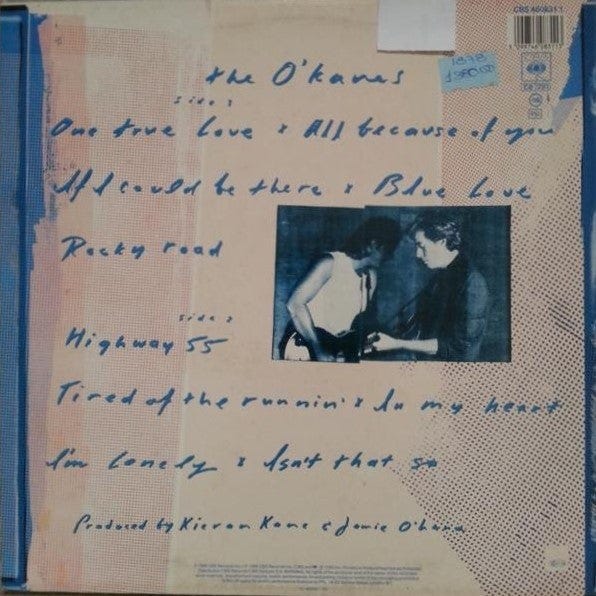 CBS 4609311
the O'kanes
side 1
One true Love x All because of you
If I could be there x Blue Love
Rocky road
side 2
Highway 55
Tired of the runnin' x In my heart
I'm Lonely x Isn't that so
Produced by Kieran Kane & Jamie O'hara